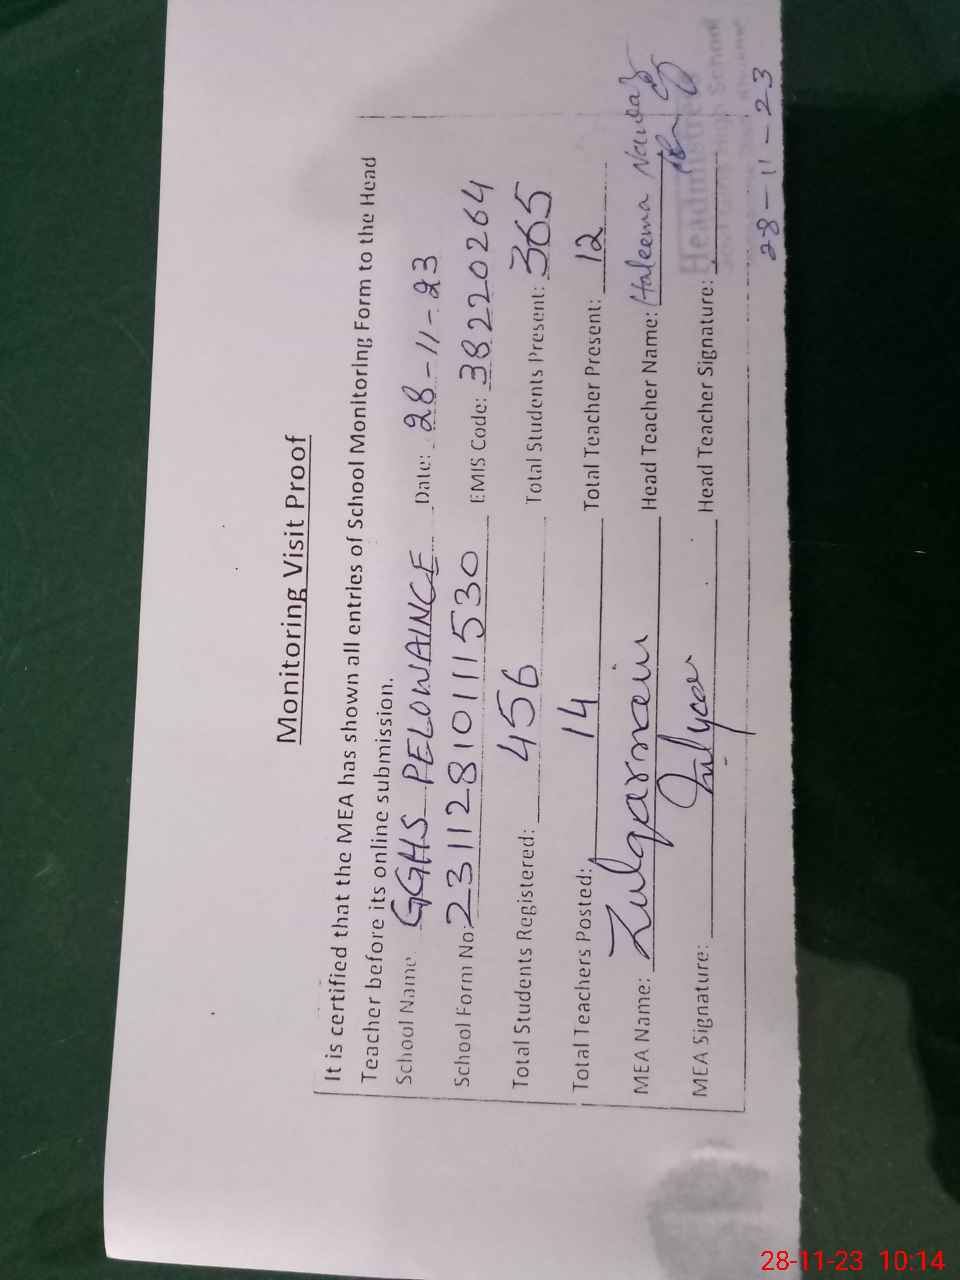 Monitoring Visit Proof
It is certified that the MEA has shown all entries of School Monitoring Form to the Head
Teacher before its online submission.
School Name GGHS PELOWAINCE Date: 28-11-23
School Form No: 23112810111530 EMIS Code: 38220264
Total Students Registered: 456 Total Students Present: 365
Total Teachers Posted: 14 Total Teacher Present: 12
MEA Name: Zulqarnain Head Teacher Name: Haleema Nawaz
MEA Signature: Head Teacher Signature:
28-11-23
28-11-23 10:14